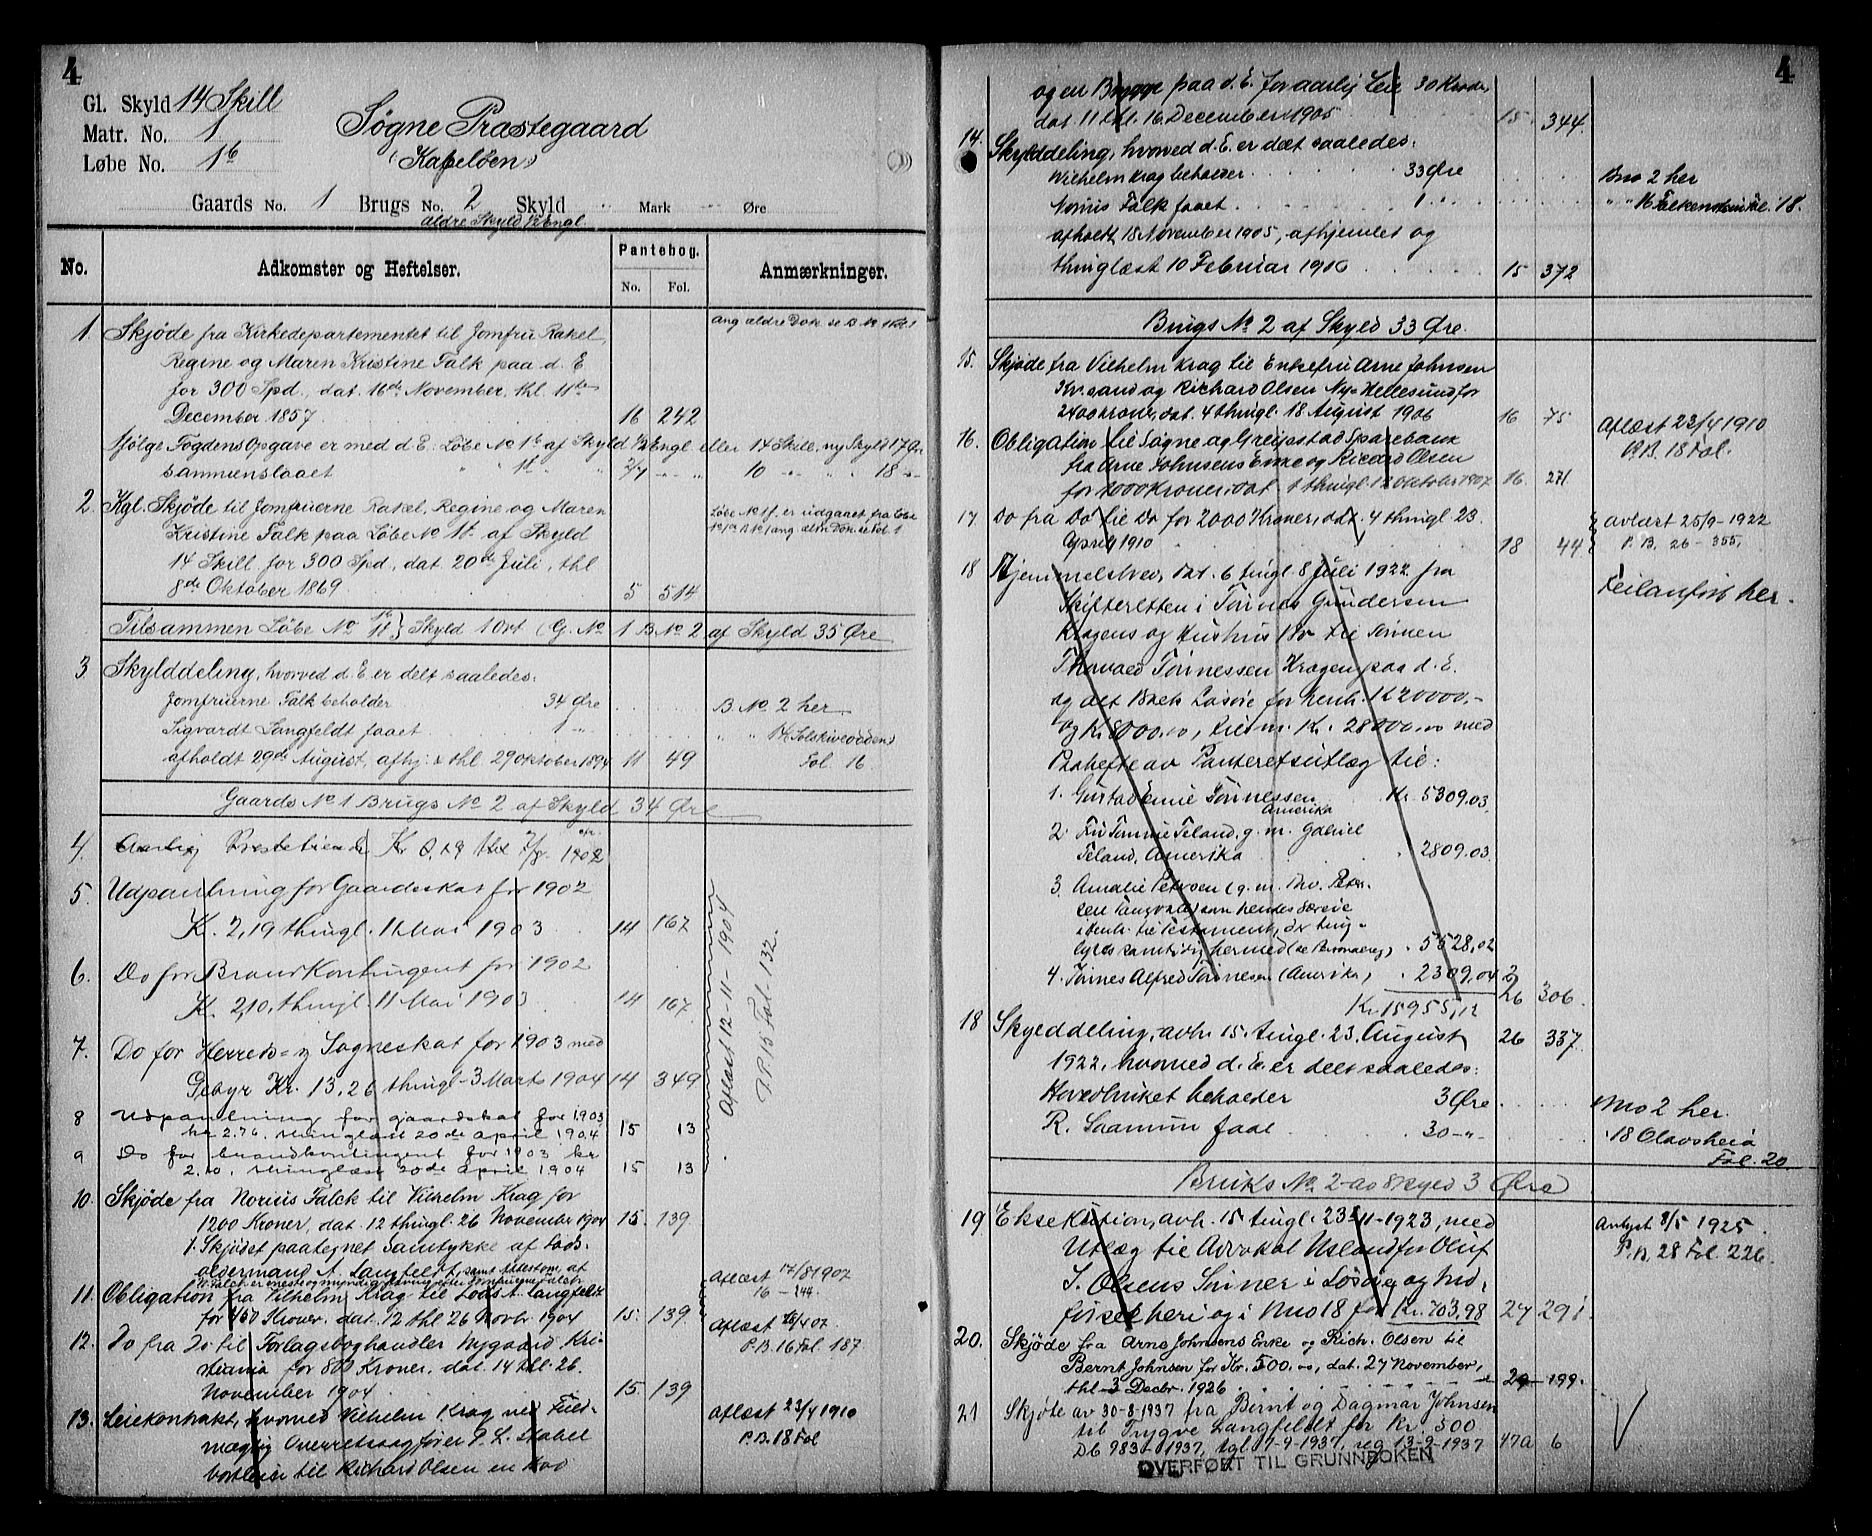 4
Gl. Skyld 14 Skill
Matr. No. 1
Løbe No. 1b
Søgne Præstegaard
(Kapeløen)
Gaards No. 1 Brugs No. 2 Skyld " Mark " Øre
ældre Skyld ½ Engl.
No. Adkomster og Heftelser. Pantebog. No. Fol. Anmærkninger.
1. Skjøde fra Kirkedepartementet til Jomfru Rakel,
Regine og Maren Kristine Falk paa d. E
for 300 Spd, dat. 16de November, thl. 11te
December 1857 16 242
Ang ældre Dok. se B. No 1 Fol. 1
Ifølge Fogdens Opgave er med d. E. Løbe No 1b af Skyld ½ Engl. eller 14 Skill, ny Skyld 17 Øre
sammenslaaet " " 1f " 2/4 " " 10 " " 18 "
2. Kgl. Skjøde til Jomfruerne Rakel, Regine og Maren
Kristine Falk paa Løbe No 1f. af Skyld
14 Skill for 300 Spd., dat. 20de Juli, thl
8de Oktober 1869 5 514
Løbe No 1f. er udgaaet fra Løbe
No 1a B. No 1, ang ældre Dok. se Fol. 1
Tilsammen Løbe No 1b 1f } Skyld 1 Ort (G. No 1 B No 2 af Skyld 35 Øre
3. Skylddeling, hvorved d. E er delt saaledes:
Jomfruerne Falk beholder 34 Øre B No 2 her
Sigvardt Langfeldt faaet 1 " " " 14 Solskiveodden)
afholdt 29de August, afhj. & thl. 29 oktober 1894 11 49 Fol. 16
Gaards No 1 Brugs No 2 af Skyld 34 Øre
4. Aarlig Prestetiende Kr 0,19 1902
5. Udpantning for Gaardsskat for 1902
K. 2,19 thingl. 11 Mai 1903 14 167
6. Do for Brandkontingent for 1902
K. 2,10, thingl. 11 Mai 1903 14 167
7. Do for Herreds- og Sogneskat for 1903 med
Gebyr Kr. 13,26 thingl. 3 Marts 1904 14 349
8 Udpantning for gaardskat for 1903
kr 2.76. thinglæst 20de april 1904 15 13
9 Do for brandkontingent for 1903 kr
2.10. thinglæst 20de april 1904 15 13
Aflæst 12-11-1904
P.P. 15 Fol. 132.
10. Skjøde fra Norius Falck til Vilhelm Krag for
1200 Kroner, dat. 12 thingl. 26 November 1904 15. 139.
I Skjødet paategnet samtykke af Lods-
oldermand A. Langfeldt, samt attest om, at
N. Falck er eneste og myndig arving efter Jomfruerne Falck.
11. Obligation fra Vilhelm Krag til Lods A. Langfeldt
for 450 Kroner. dat. 12 thl. 26 Novbr. 1904 15. 139.
Aflæst 17/8 1907
16 – 144.
12. Do fra Do til Forlagsboghandler Nygaard Kri-
stiania for 800 Kroner, dat. 14 thl. 26.
November 1904 15. 139
Aflæst 18/4 07.
P.B. 16 Fol. 187.
13. Leiekontrakt, hvorved Vilhelm Krag ved Fuld-
mægtig Overretssagfører P. L. Stabel
bortleier til Richard Olsen en Bod
Aflæst 23/4 1910
P.B. 18 Fol
4
og en Brygge paa d. E. for aarlig Leie 30 Kroner,
dat. 11 thl. 16 December 1905 15. 344.
14. Skylddeling, hvorved d. E. er delt saaledes:
Wilhelm Krag beholder 33 Øre Bno 2 her
Norius Falk faaet 1 " " " 16 Falkensten Fol. 18.
afholdt 18 November 1905, afhjemlet og
thinglæst 10 Februar 1906 15 372
Brugs No 2 af Skyld 33 Øre.
15. Skjøde fra Vilhelm Krag til Enkefru Arne Johnsen
Kr.sand og Richard Olsen Ny-Hellesund for
2400 kroner, dat. 4 thingl. 18 August 1906 16 75
16. Obligation til Søgne og Greipstad Sparebank
fra Arne Johnsens Enke og Ricard Olsen
for 1000 Kroner, dat 1 thingl. 12 Oktober 1907 16. 271.
Aflæst 23/4 1910
P.B. 18 Fol.
17. Do fra Do til Do for 2000 Kroner, dat. 4 thingl 23.
April 1910 18 44
Avlæst 25/9-1922
P.B. 26-355.
18 Hjemmelsbrev, dat. 6 tingl. 8 Juli 1922 fra
Skifteretten i Tønnes Gundersen
Kragens og Hustrus Bo til Sønnen
Thorvald Tønnessen Kragen paa d. E.
og det 18 for henh. K 20000,-
og Kr. 8000.00, tils.m. Kr. 28000.00 med
Paahefte av Panteretsutlæg til:
1. Gustav Emil Tønnessen Amerika Kr. 5309.03.
2. Fru Tomine Teland, g. m. Gabriel
Teland, Amerika " 2809.03.
3. Amalie Petersen (g. m. Thv. Peter-
sen Tangvald) som hendes Særeie
i henh. til Testament, der ting-
lyses samtidig hermed (se Personalreg) " 5528,02
4. Tønnes Alfred Tønnesen (Amerika) " 2309,04
Kr. 15955,12 26 306.
Feilanført her.
18 Skylddeling, avh. 15. tingl. 23. August 26 337.
1922, hvorved d. E. er delt saaledes:
Hovedbruket beholder 3 Øre Bno 2 her.
R. Saamun faat 30 " " 18 Olavsheia
Fol. 20
Bruks No 2 av skyld 3 Øre
19. Eksekution, avh. 15. tingl. 23-11-1923, med
Utlæg til Advokat Usland for Oluf
I. Olsens Sønner i , og Ind-
førsel heri og i bno 18 for Kr. 703,98 27 291
Avlyst 8/5 1925.
P.B. 28 Fol. 226.
20. Skjøde fra Arne Johnsens Enke og Rich. Olsen til
Bernt Johnsen for Kr. 500.00, dat. 27 November,
thl 3 Decbr. 1926 29 199.
21 Skjøte av 30-8-1937 fra Bernt og Dagmar Johnsen
til Trygve Langfeldt for Kr. 500
Db 983-1937, tgl. 7-9-1937, reg 13-9-1937 47a 6
OVERFØRT TIL GRUNNBOKEN